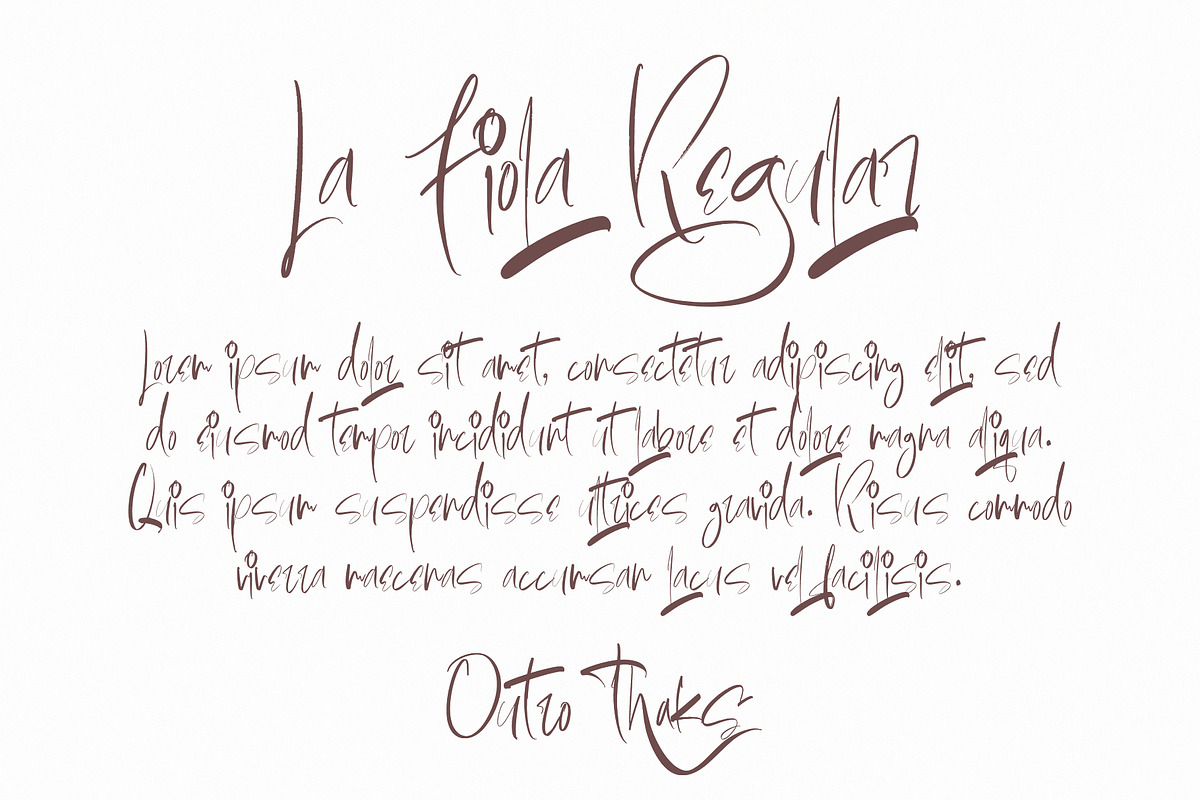 La Fiola Regular
Lorem ipsum dolor sit amet, consectetur adipiscing elit, sed
do eiusmod tempor incididunt ut labore et dolore magna aliqua.
Quis ipsum suspendisse ultrices gravida. Risus commodo
viverra maecenas accumsan lacus vel facilisis.
Outro Thaks